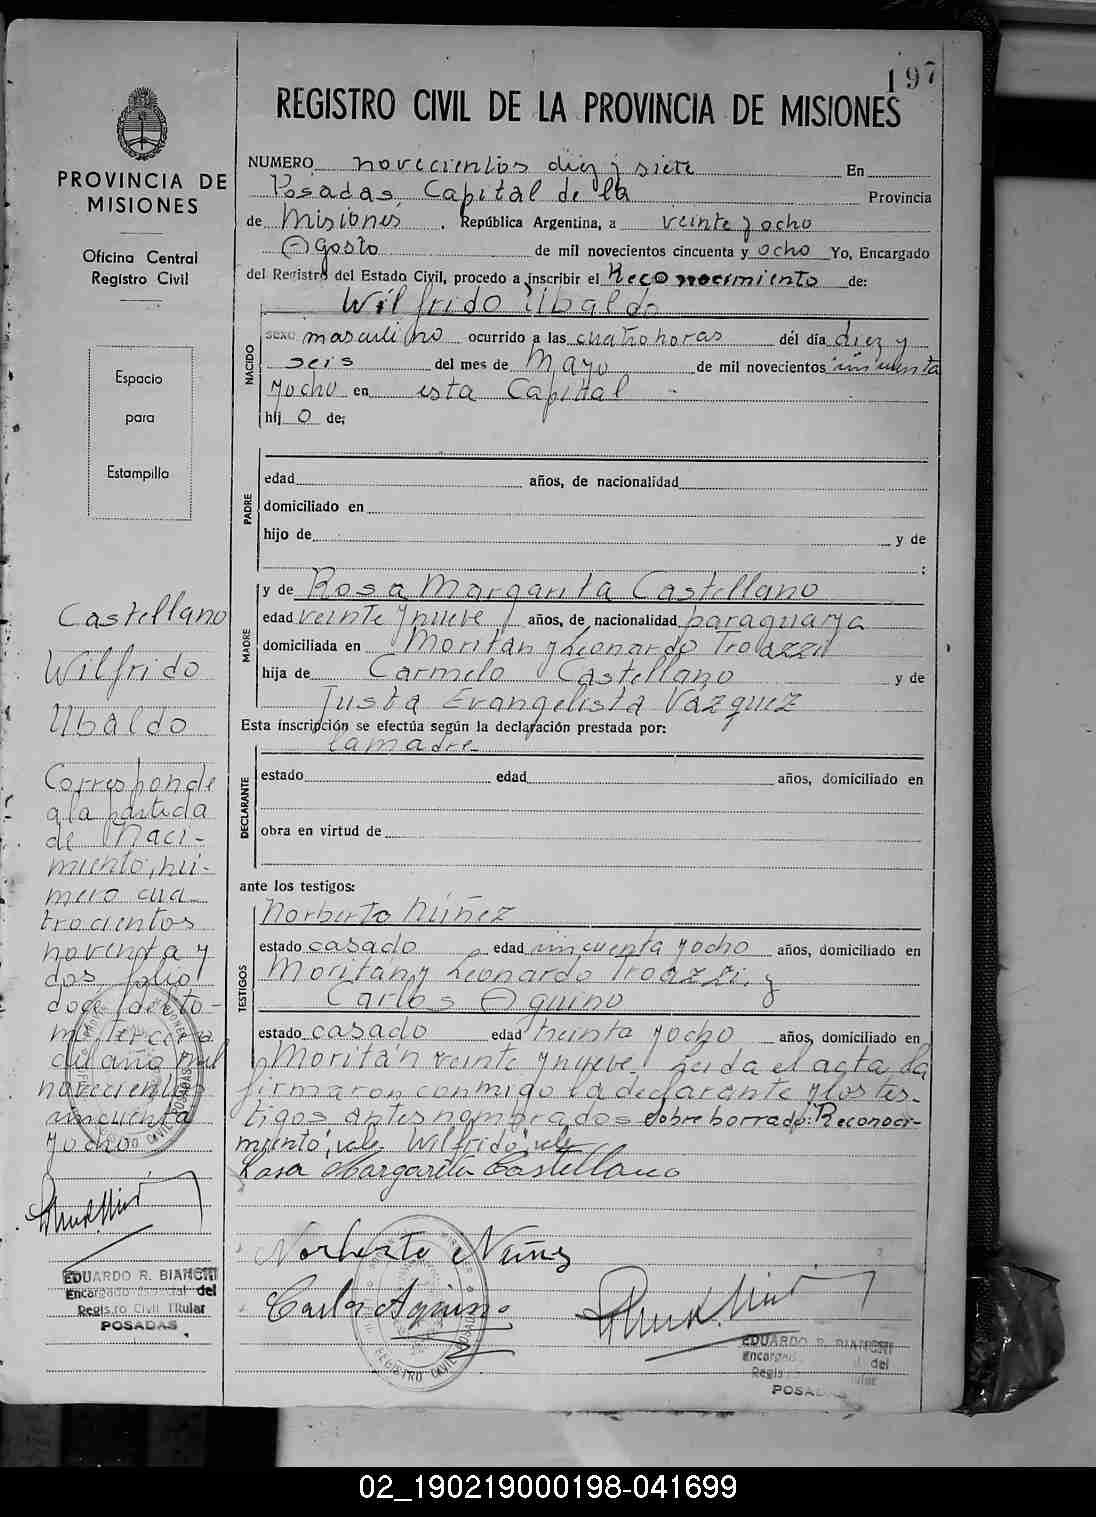 197
REGISTRO CIVIL DE LA PROVINCIA DE MISIONES
NUMERO novecientos diez y siete En
Posadas, Capital de la Provincia
de Misiones. República Argentina, a veinte y ocho
Agosto de mil novecientos cincuenta y ocho Yo, Encargado
del Registro del Estado Civil, procedo a inscribir el Reconocimiento de:
Wilfrido Ubaldo
NACIDO
sexo masculino ocurrido a las cuatro horas del día diez y
seis del mes de Mayo de mil novecientos cincuenta
y ocho en esta Capital -
hijo de;
PADRE
edad años, de nacionalidad
domiciliado en
hijo de y de
;
MADRE
y de Rosa Margarita Castellano
edad veinte y nueve años, de nacionalidad paraguaya
domiciliada en Moritan y Leonardo Troazzi
hija de Carmelo Castellano y de
Justa Evangelista Vázquez
Esta inscripción se efectúa según la declaración prestada por:
la madre
DECLARANTE
estado edad años, domiciliado en
obra en virtud de
ante los testigos:
TESTIGOS
Norberto Núñez
estado casado edad cincuenta y ocho años, domiciliado en
Moritan y Leonardo Troazzi, y
Carlos Aquino
estado casado edad treinta y ocho años, domiciliado en
Moritán veinte y nueve. Leida el acta, la
firmaron conmigo la declarante y los tes-
tigos antes nombrados sobre borrado: "Reconoci-
miento", vale Wilfrido", vale
Rosa Margarita Castellano
Norberto Núñez
Carlos Aquino
REGISTRO CIVIL POSADAS
EDUARDO R. BIANCHI
Encarg del
Regis
POSADAS
PROVINCIA DE
MISIONES
Oficina Central
Registro Civil
Espacio
para
Estampilla
Castellano
Wilfrido
Ubaldo
Corresponde
a la partida
de Naci-
miento, nú-
mero cua
trocientos
noventa y
dos folio
doce del to-
mo tercero
del año mil
novecientos
cincuenta
y ocho
EDUARDO R. BIANCHI
Encargado del
Registro Civil Titular
POSADAS
02_190219000198-041699